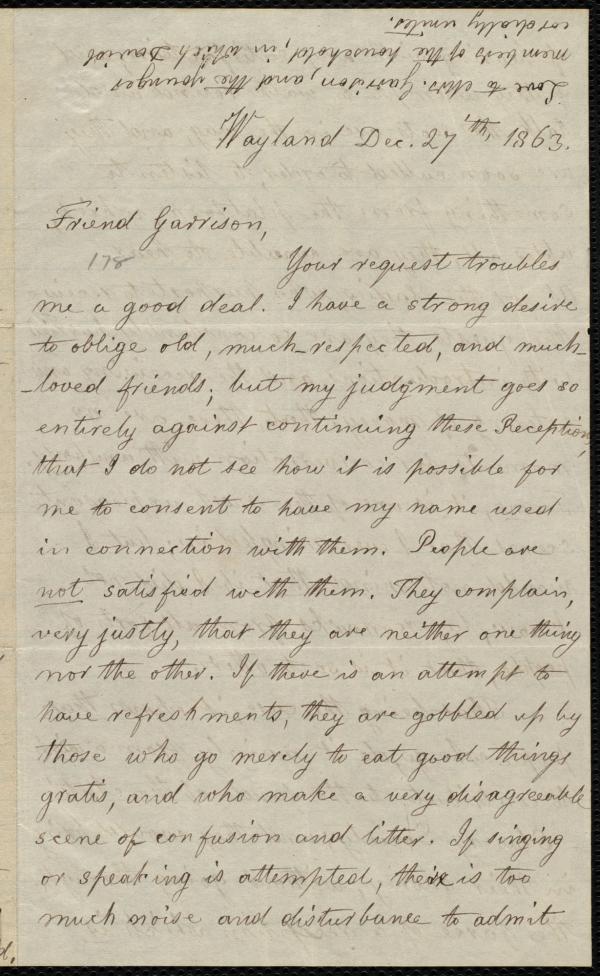 Love to Mrs. Garrison, and the younger
members of the household, in which David
cordially unites.
Wayland Dec. 27th, 1863.
Friend Garrison,
178
Your request troubles
me a good deal. I have a strong desire
to oblige old, much-respected, and much-
-loved friends; but my judgment goes so
entirely against continuing these Receptions,
that I do not see how it is possible for
me to consent to have my name used
in connection with them. People are
not satisfied with them. They complain,
very justly, that they are neither one thing
nor the other. If there is an attempt to
have refreshments, they are gobbled up by
those who go merely to eat good things
gratis, and who make a very disagreeable
scene of confusion and litter. If singing
or speaking is attempted, there is too
much noise and disturbance to admit
d.